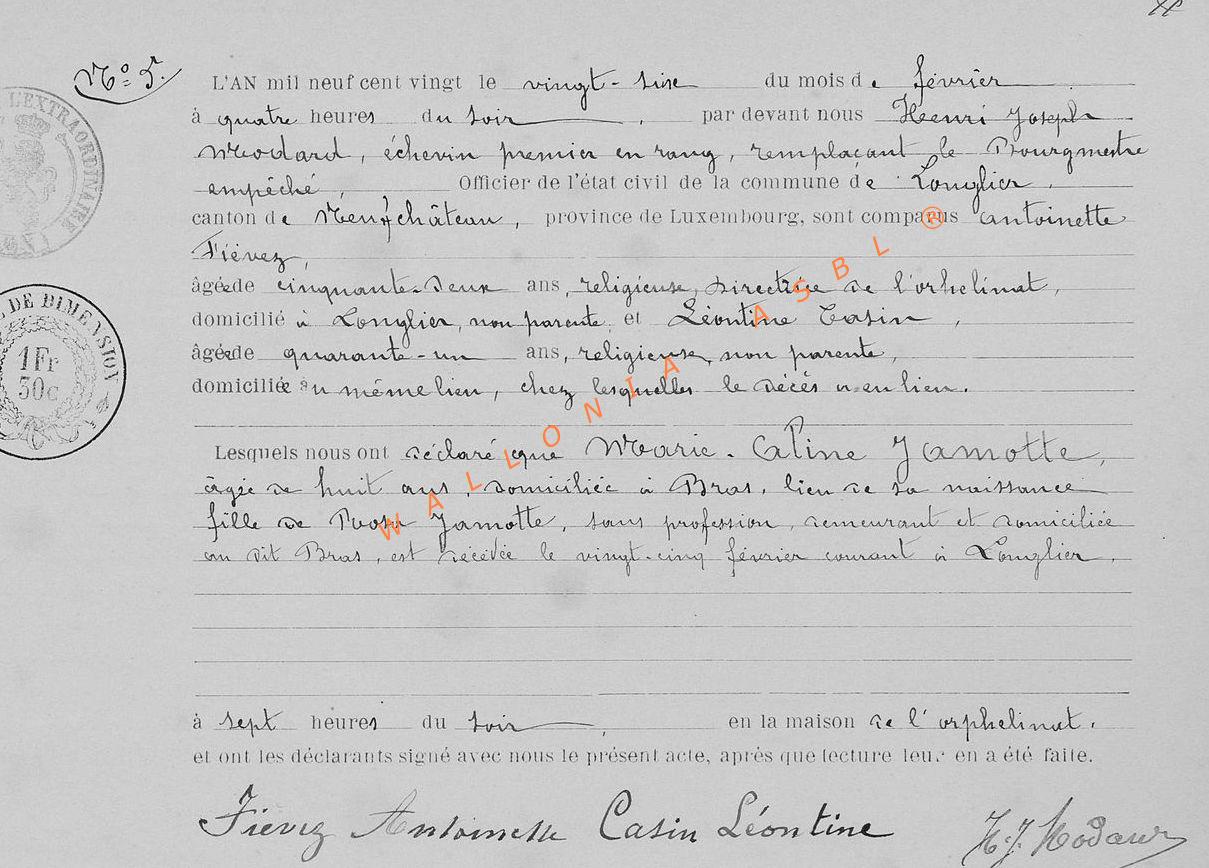 N° 5.
L'AN mil neuf cent vingt le vingt-six du mois de février
à quatre heures du soir, par devant nous Henri Joseph
Modard, échevin premier en rang, remplaçant le Bourgmestre
empêché, Officier de l'état civil de la commune de Longlier,
canton de Neufchâteau, province de Luxembourg, sont comparus Antoinette
Fiévez,
âgée de cinquante-deux ans, religieuse, Directrice de l'orhelinat,
domicilié à Longlier, non parente, et Léontine Casin,
âgée de quarante-un ans, religieuse, non parente,
domiciliée au même lien, chez lesquelles le décès a eu lieu.
Lesquels nous ont déclaré que Marie-Aline Jamotte,
âgée de huit ans, domiciliée à Bras, lieu de sa naissance
fille de Rosa Jamotte, sans profession, demeurant et domiciliée
au dit Bras, est décédée le vingt-cinq février courant à Longlier,
à sept heures du soir, en la maison de l'orphelinat.
et ont les déclarants signé avec nous le présent acte, après que lecture leur en a été faite.
Fiévez Antoinette Casin Léontine H. J. Modard
L'EXTRAORDINAIRE
DE DIMENSION
1 Fr
50c
WALLONIA ASBL ®